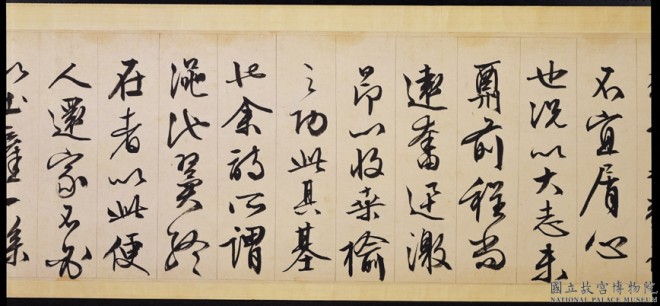 不宜屑心
也况以大志未
前程尚
遠奮迅激
昂以收桑榆
之功此其基
也余詩所謂
澠池翼終
在者以此便
人還家不
國立故宮博物院
NATIONAL PALACE MUSEUM